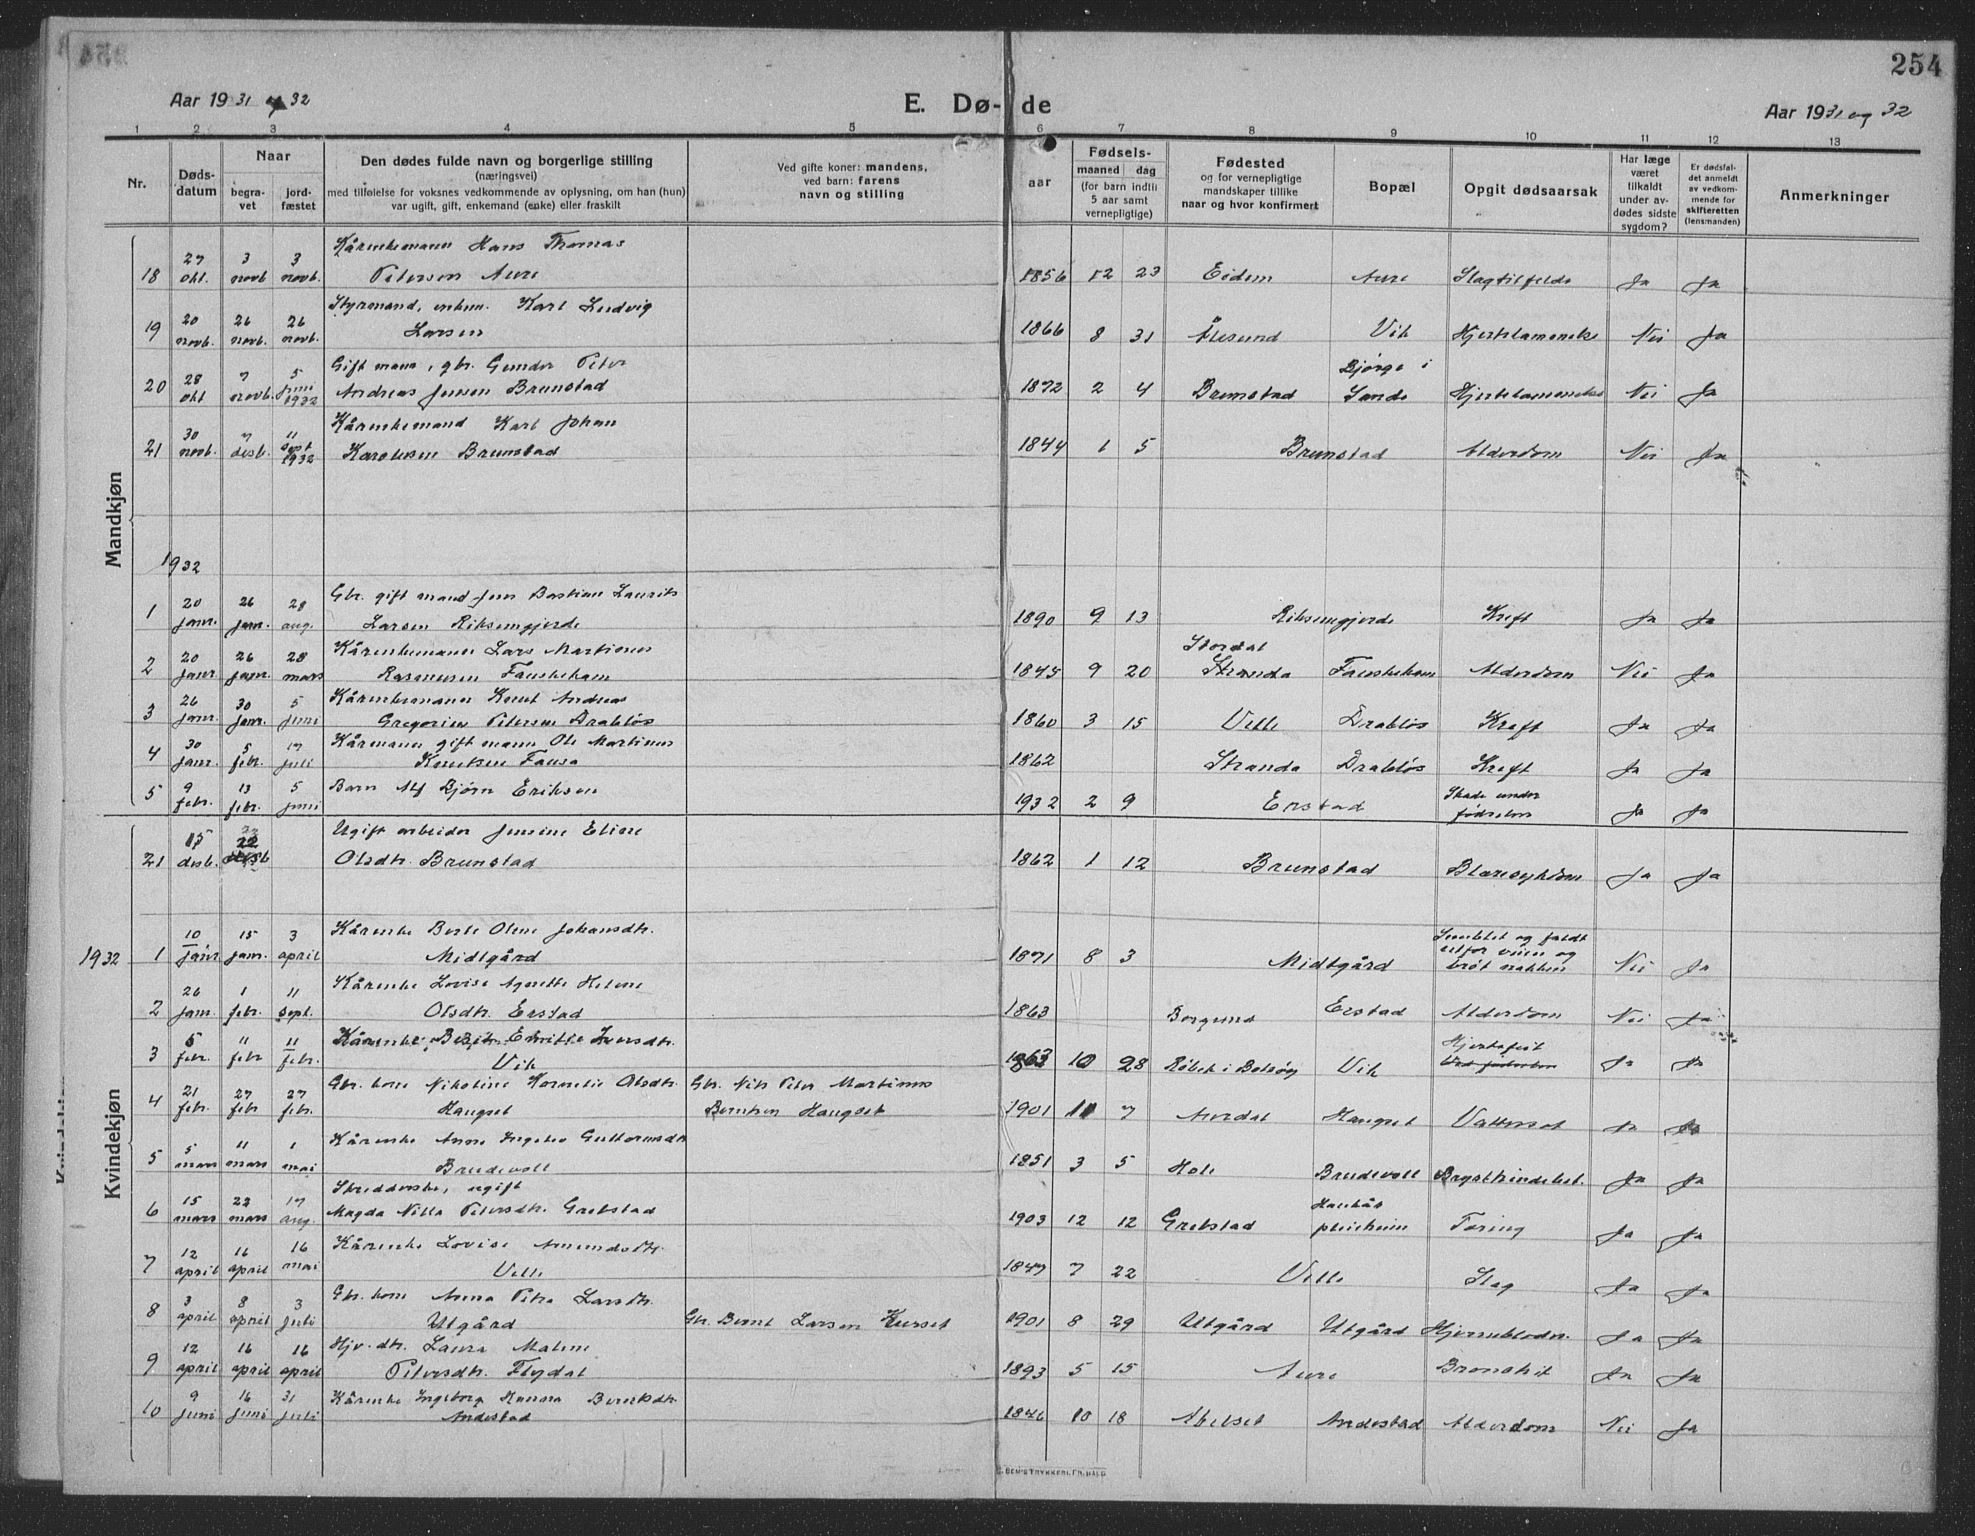 254
Aar 1931 og 32
E. Dø- de
Aar 1931 og 32
1 2 3 4 5 6 7 8 9 10 11 12 13
Nr.
Døds-
datum
Naar
begra-
vet
jord-
fæstet
Den dødes fulde navn og borgerlige stilling
(næringsvei)
med tilføielse for voksnes vedkommende av oplysning, om han (hun)
var ugift, gift, enkemand (enke) eller fraskilt
Ved gifte koner: mandens,
ved barn: farens
navn og stilling
Fødsels-
aar
maaned dag
(for barn indtil
5 aar samt
vernepligtige)
Fødested
og for vernepligtige
mandskaper tillike
naar og hvor konfirmert
Bopæl
Opgit dødsaarsak
Har læge
været
tilkaldt
under av-
dødes sidste
sygdom?
Er dødsfal-
det anmeldt
av vedkom-
mende for
skifteretten
(lensmanden)
Anmerkninger
Mandkjøn
27 3 3 Kårenkemann Hans Thomas
18 okt. novb novb. Petersen Aure 1856 12 23 Eidem Aure Slagtilfelde Ja Ja
20 26 26 Styrmand, enkem. Karl Ludvig
19 novb. novb. novb. Larsen 1866 8 31 Ålesund Vik Hjertelammelse Nei Ja
28 7 5 Gift mann, gbr. Gunder Peter Bjørge i
20 okt novb. juni 1932 Andreas Jensen Brunstad 1872 2 4 Brunstad Sande Hjertelammelse Nei Ja
30 7 11 Kårenkemand Karl Johan
21 novb. desb. sept 1932 Karolusen Brunstad 1844 1 5 Brunstad Alderdom Nei Ja
1932
20 26 28 Gbr. gift mand Jens Bastian Laurits
1 janr. janr. aug. Larsen Riksemgjerde 1890 9 13 Riksemgjerde Kreft Ja Ja
20 26 28 Kårenkemann Lars Martinus Stordal
2 janr janr. mars Rasmussen Fauskeham 1845 9 20 Stranda Fauskeham Alderdom Nei Ja
26 30 5 Kårenkemann Knut Andreas
3 janr. janr. juni Gregorius Petersen Drabløs 1860 3 15 Velle Drabløs Kreft Ja Ja
30 5 17 Kårmann gift mann Ole Martinus
4 janr. febr. juli Knutsen Fausa 1862 Stranda Drabløs Kreft Ja Ja
9 13 5 Barn Alf Bjørn Eriksen Skade under
5 febr. febr. juni 1932 2 9 Erstad fødselen Ja Ja
Kvindekjøn
15 22 Ugift arbeider Jensine Eline
21 desb. desb Olsdtr. Brunstad 1862 1 12 Brunstad Blæresykdom Ja Ja
1932
10 15 3 Kårenke Berte Oline Johansdtr. Snublet og faldt
1 janr janr. april Midtgård 1871 8 3 Midtgård utfor veien og brøt nakken Nei Ja
26 1 11 Kårenke Lovise Agnette Helene
2 janr. febr. sept. Olsdtr. Erstad 1863 Borgund Erstad Alderdom Nei Ja
5 11 11 Kårenke Iversdtr. Hjertefeil
3 febr. febr febr. Vik 1863 10 28 Røbek i Bolsøy Vik Ja Ja
21 27 27 Gbr. kone Nikoline Kornelie Olsdtr. Gbr. Nils Peter Martinus
4 febr. febr febr. Haugset Berntsen Haugset 1901 11 7 Aurdal Haugset Vattersot Ja Ja
5 11 1 Kårenke Anne Ingebo Guttormsdtr
5 mars mars mai Brudevoll 1851 3 5 Hole Brudevoll Brysthindebet. Ja Ja
15 22 17 Skredderske, ugift Haukås
6 mars mars aug. Magda Nilla Petersdtr. Grebstad 1903 12 12 Grebstad pleieheim Tæring Ja Ja
12 16 16 Kårenke Lovise Amundsdtr.
7 april april mai Velle 1847 7 22 Velle Slag Ja Ja
3 8 3 Gbr. kone Anna Petra Larsdtr.
8 april april juli Utgård Gbr. Bernt Larsen Kurset 1901 8 29 Utgård Utgård Hjerneblødn. Ja Ja
12 16 16 Hjv. dtr. Laura Maline
9 april april april Petersdtr. Flydal 1893 5 15 Aure Bronkit Ja Ja
9 16 31 Kårenke Ingeborg Hanna Berntsdtr.
10 juni juni juli Andestad 1846 10 18 Abelset Andestad Alderdom Nei Ja